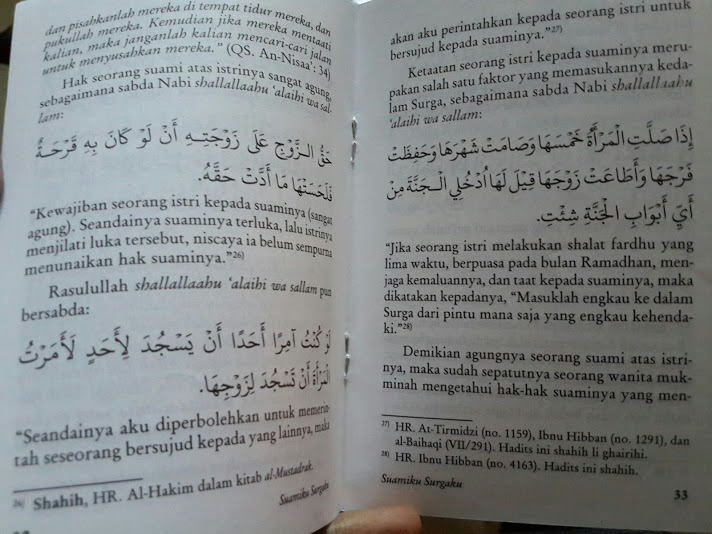 dan pisahkanlah mereka di tempat tidur mereka, dan
pukullah mereka. Kemudian jika mereka mentaati
kalian, maka janganlah kalian mencari-cari jalan
untuk menyusahkan mereka." (QS. An-Nisaa': 34)
Hak seorang suami atas istrinya sangat agung,
sebagaimana sabda Nabi shallallaahu 'alaihi wa sal-
lam:
حَقُّ الزَّوْجِ عَلَى زَوْجَتِهِ أَنْ لَوْ كَانَ بِهِ قَرْحَةٌ
فَلَحَسَتْهَا مَا أَدَّتْ حَقَّهُ.
"Kewajiban seorang istri kepada suaminya (sangat
agung). Seandainya suaminya terluka, lalu istrinya
menjilati luka tersebut, niscaya ia belum sempurna
menunaikan hak suaminya."26)
Rasulullah shallallaahu 'alaihi wa sallam pun
bersabda:
لَوْ كُنْتُ آمِرًا أَحَدًا أَنْ يَسْجُدَ لِأَحَدٍ لَأَمَرْتُ
الْمَرْأَةَ أَنْ تَسْجُدَ لِزَوْجِهَا.
"Seandainya aku diperbolehkan untuk memerin-
tah seseorang bersujud kepada yang lainnya, maka
26) Shahih, HR. Al-Hakim dalam kitab al-Mustadrak.
Suamiku Surgaku
akan aku perintahkan kepada seorang istri untuk
bersujud kepada suaminya."27)
Ketaatan seorang istri kepada suaminya meru-
pakan salah satu faktor yang memasukannya keda-
lam Surga, sebagaimana sabda Nabi shallallaahu
'alaihi wa sallam:
إِذَا صَلَّتِ الْمَرْأَةُ خَمْسَهَا وَصَامَتْ شَهْرَهَا وَحَفِظَتْ
فَرْجَهَا وَأَطَاعَتْ زَوْجَهَا قِيْلَ لَهَا اُدْخُلِي الْجَنَّةَ مِنْ
أَيِّ أَبْوَابِ الْجَنَّةِ شِئْتِ.
"Jika seorang istri melakukan shalat fardhu yang
lima waktu, berpuasa pada bulan Ramadhan, men-
jaga kemaluannya, dan taat kepada suaminya, maka
dikatakan kepadanya, "Masuklah engkau ke dalam
Surga dari pintu mana saja yang engkau kehenda-
ki."28)
Demikian agungnya seorang suami atas istri-
nya, maka sudah sepatutnya seorang wanita muk-
minah mengetahui hak-hak suaminya yang men-
27) HR. At-Tirmidzi (no. 1159), Ibnu Hibban (no. 1291), dan
al-Baihaqi (VII/291). Hadits ini shahih li ghairihi.
28) HR. Ibnu Hibban (no. 4163). Hadits ini shahih.
Suamiku Surgaku
33